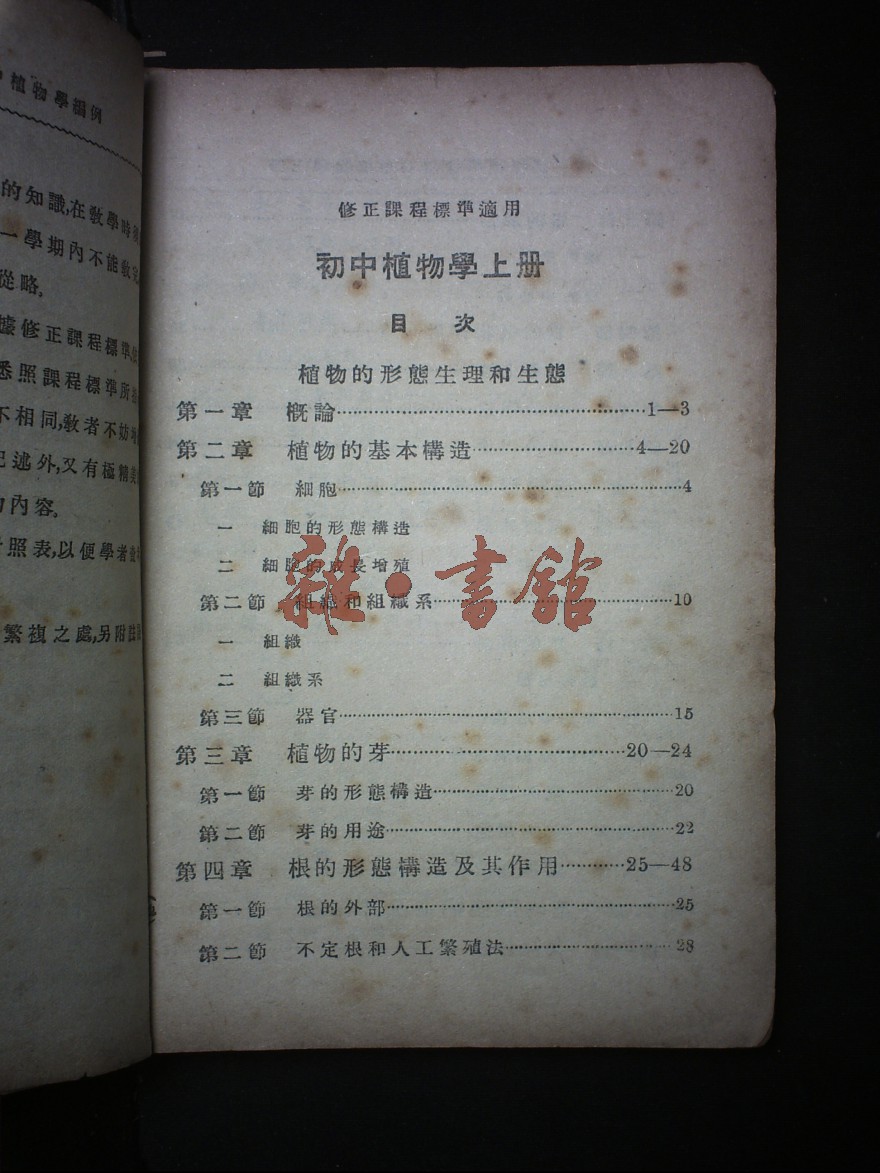 植物學編例
的知識,在敎學時
一學期內不能敎完
從略。
據修正課程標準
悉照課程標準所
不相同,敎者不妨
述外,又有極精美
內容。
照表,以便學者
繁複之處,另附註
修正課程標準適用
初中植物學上册
目 次
植物的形態生理和生態
第一章 概論……1—3
第二章 植物的基本構造……4—20
第一節 細胞……4
一 細胞的形態構造
二 細胞的成長增殖
第二節 組織和組織系……10
一 組織
二 組織系
第三節 器官……15
第三章 植物的芽……20—24
第一節 芽的形態構造……20
第二節 芽的用途……22
第四章 根的形態構造及其作用……25—48
第一節 根的外部……25
第二節 不定根和人工繁殖法……28
雜·書館